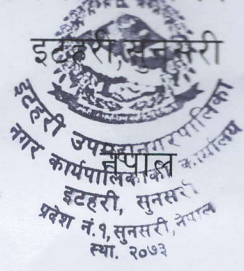 इटहरी, सुनसरी
इटहरी उपमहानगरपालिका
नगर कार्यपालिकाको कार्यालय
नेपाल
इटहरी, सुनसरी
प्रदेश नं. १, सुनसरी, नेपाल
स्था. २०७३